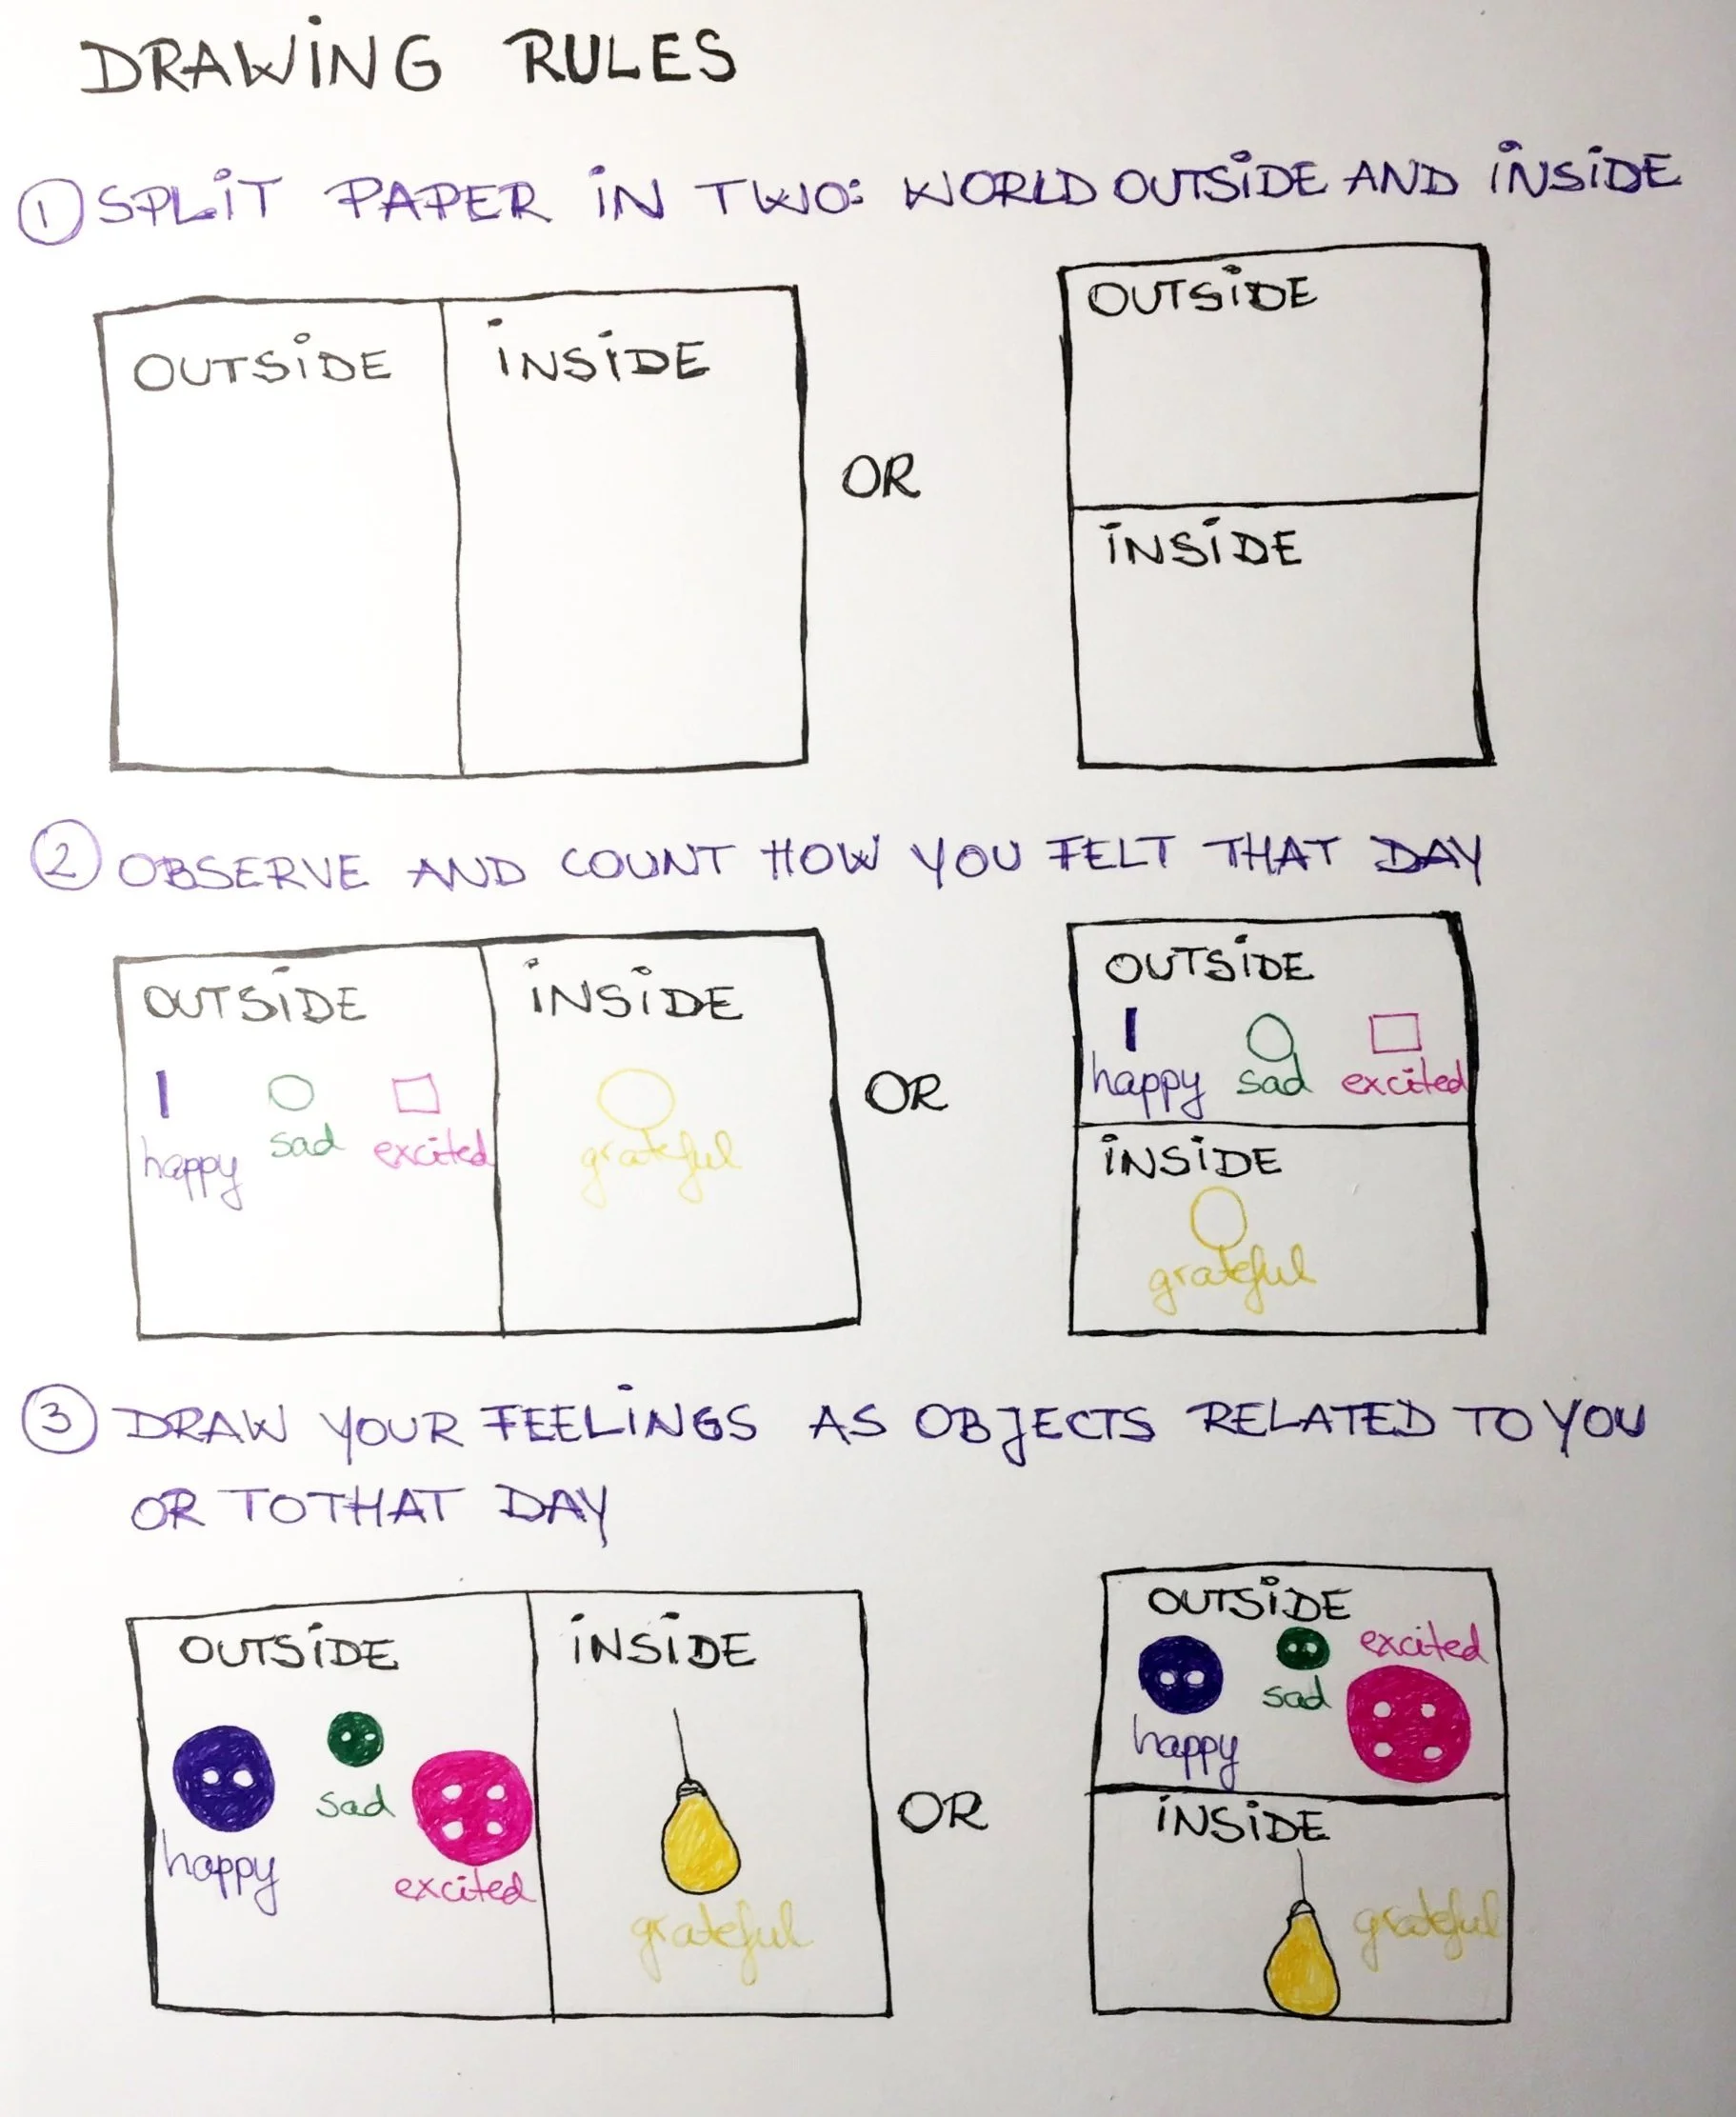 DRAWING RULES
1 SPLIT PAPER IN TWO: WORLD OUTSIDE AND INSIDE
OUTSIDE INSIDE
OR
OUTSIDE
INSIDE
2 OBSERVE AND COUNT HOW YOU FELT THAT DAY
OUTSIDE INSIDE
happy sad excited grateful
OR
OUTSIDE
happy sad excited
INSIDE
grateful
3 DRAW YOUR FEELINGS AS OBJECTS RELATED TO YOU
OR TO THAT DAY
OUTSIDE INSIDE
happy sad excited grateful
OR
OUTSIDE
happy sad excited
INSIDE
grateful